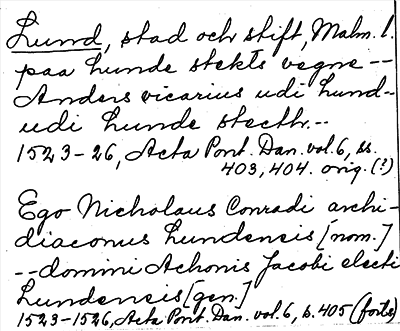 Lund, stad och stift, Malm. l.
paa Lunde stekts vegne --
Anders vicarius udi Lund-
udi Lunde stecth. --
1523-26, Acta Pont. Dan. vol. 6, ss.
403, 404. orig. (?)
Ego Nicholaus Conradi archi-
diaconus Lundensis [nom.]
-- domini Achonis Jacobi electi
Lundensis [gen.]
1523-1526, Acta Pont. Dan. vol. 6, s. 405 (forts)